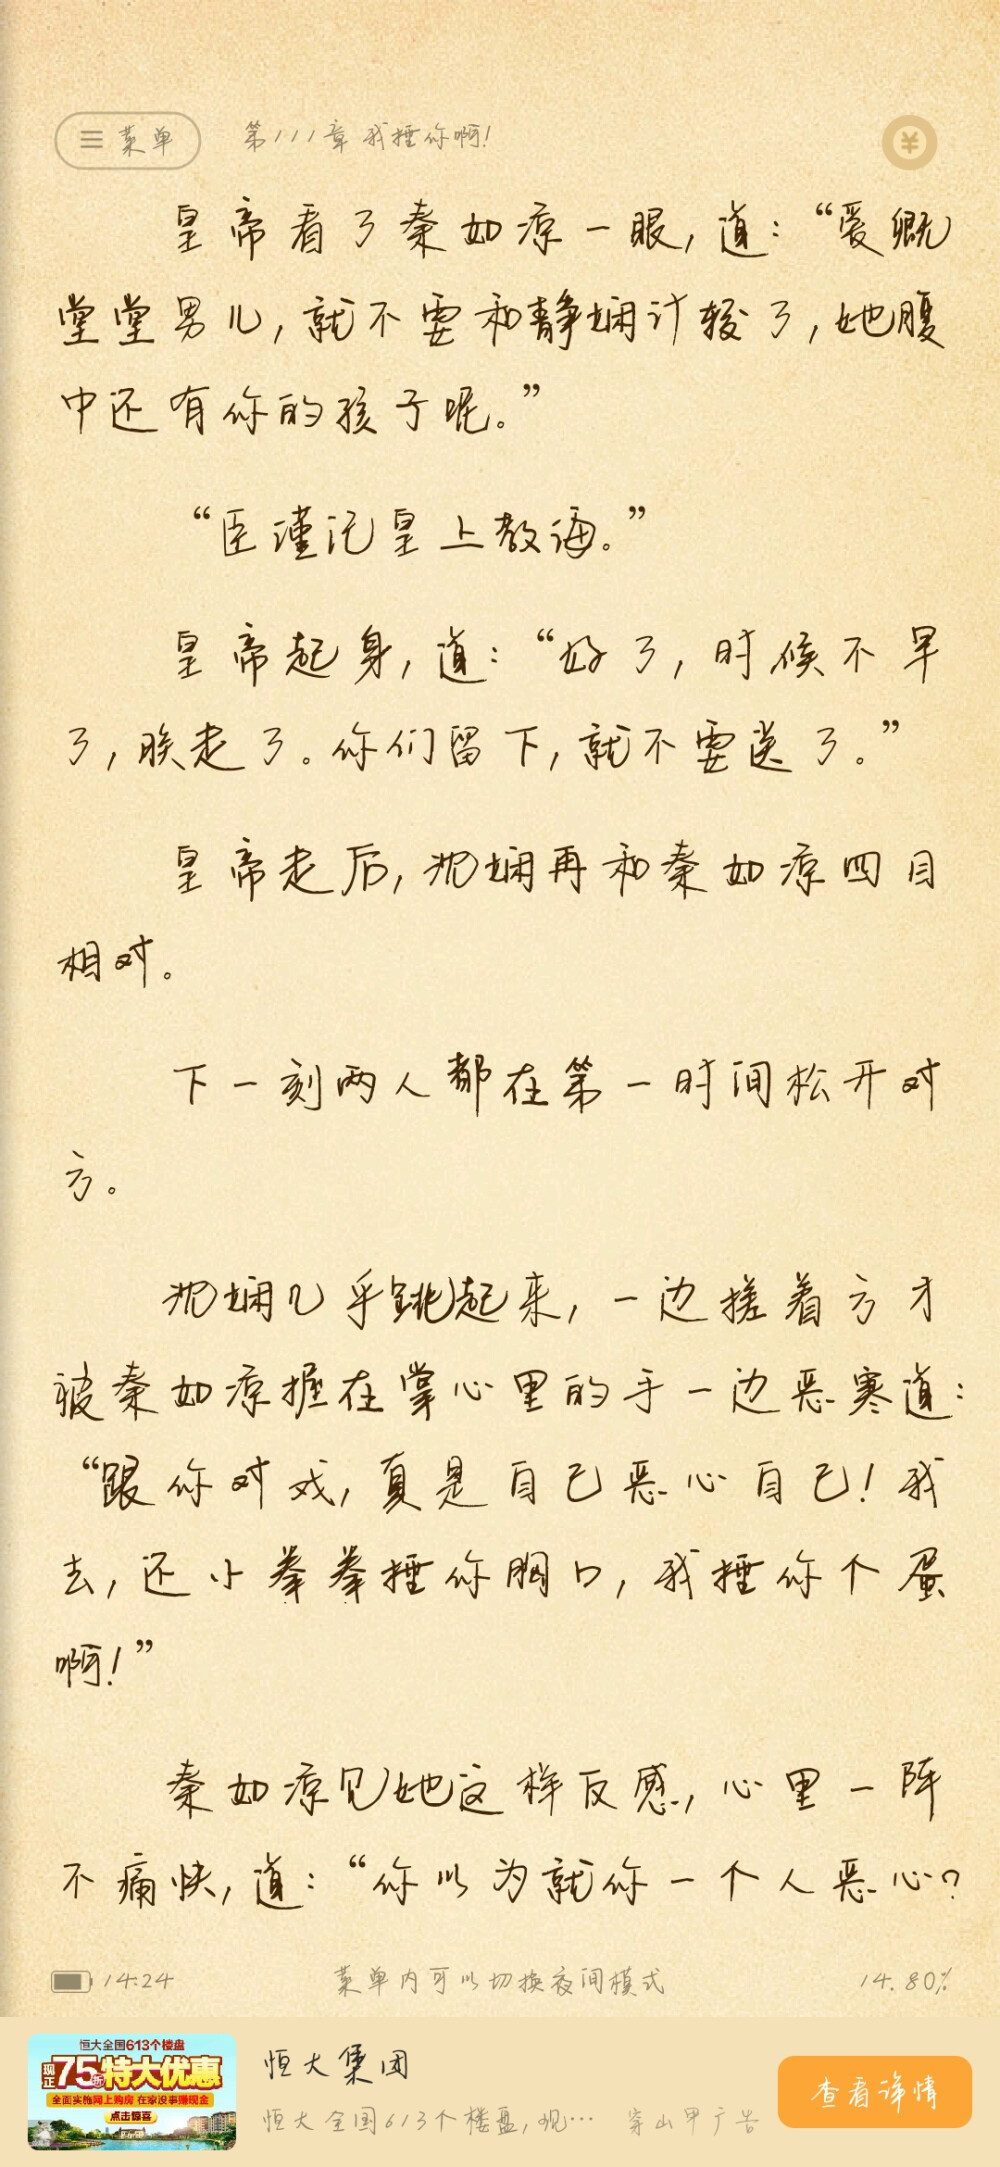 菜单
第111章 我捶你啊!
皇帝看了秦如凉一眼,道:“爱卿
堂堂男儿,就不要和静娴计较了,她腹
中还有你的孩子呢。”
“臣谨记皇上教诲。”
皇帝起身,道:“好了,时候不早
了,朕走了。你们留下,就不要送了。”
皇帝走后,沈娴再和秦如凉四目
相对。
下一刻两人都在第一时间松开对
方。
沈娴几乎跳起来,一边搓着方才
被秦如凉握在掌心里的手一边恶寒道:
“跟你对戏,真是自己恶心自己!我
去,还小拳拳捶你胸口,我捶你个蛋
啊!”
秦如凉见她这样反感,心里一阵
不痛快,道:“你以为就你一个人恶心?
14:24
菜单内可以切换夜间模式
14.80%
恒大全国613个楼盘
现正75折特大优惠
全面实施网上购房 在家没事赚现金
点击惊喜
恒大集团
恒大全国613个楼盘,现… 穿山甲广告
查看详情